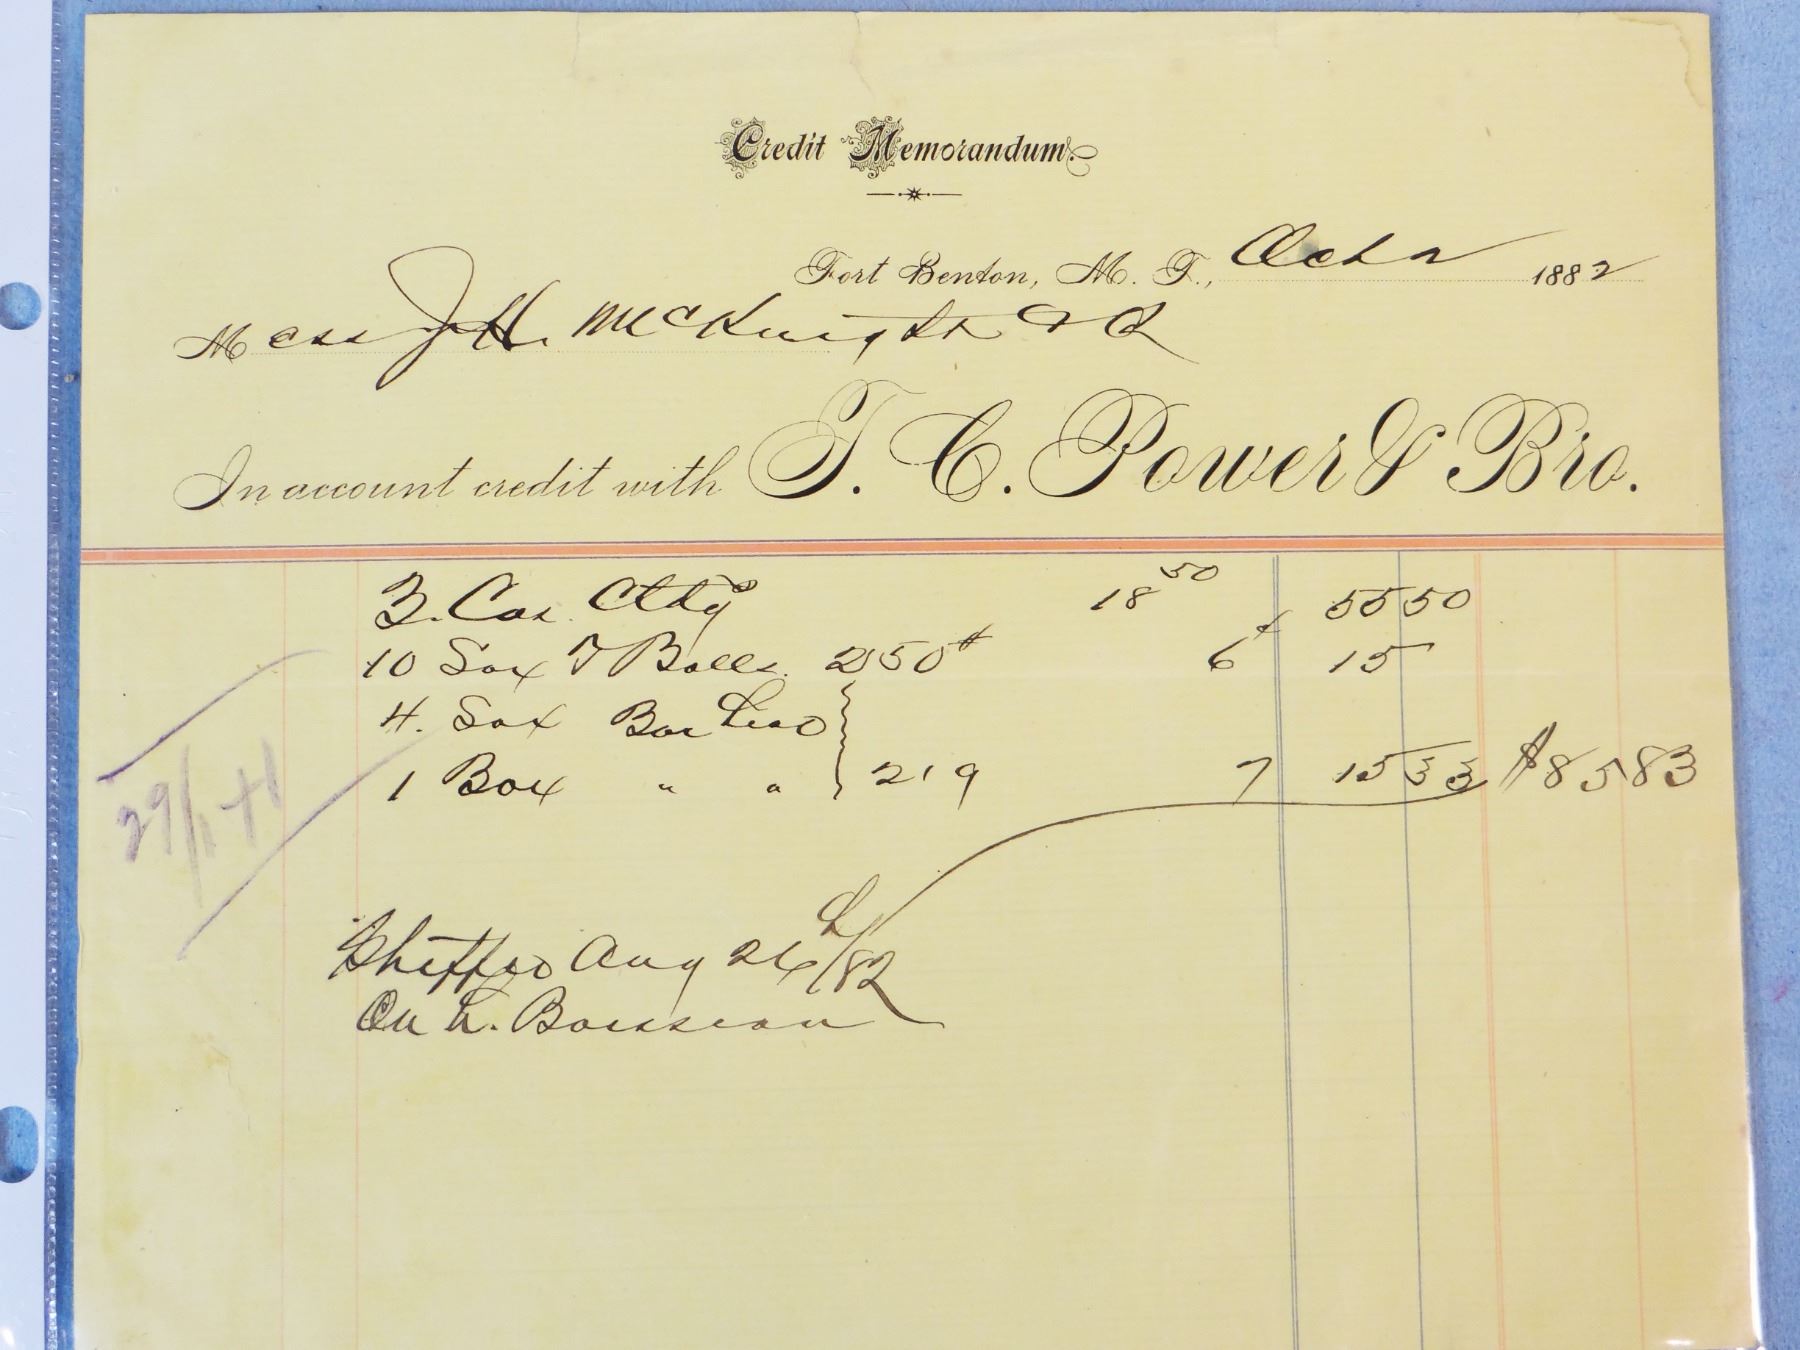 Credit Memorandum.
Fort Benton, M. T., Oct 2 1882
Mess J. H. McKnight & Co
In account credit with T. C. Power & Bro.
3. Cas. Ctdg 18 50 55 50
10 Sax T Balls. 250# 6¢ 15
4. Sax Bar Lead
1 Box " " } 219 7 15 33 $85 83
29/1 41
Shipped Aug 26th/82
On L. Boisseau